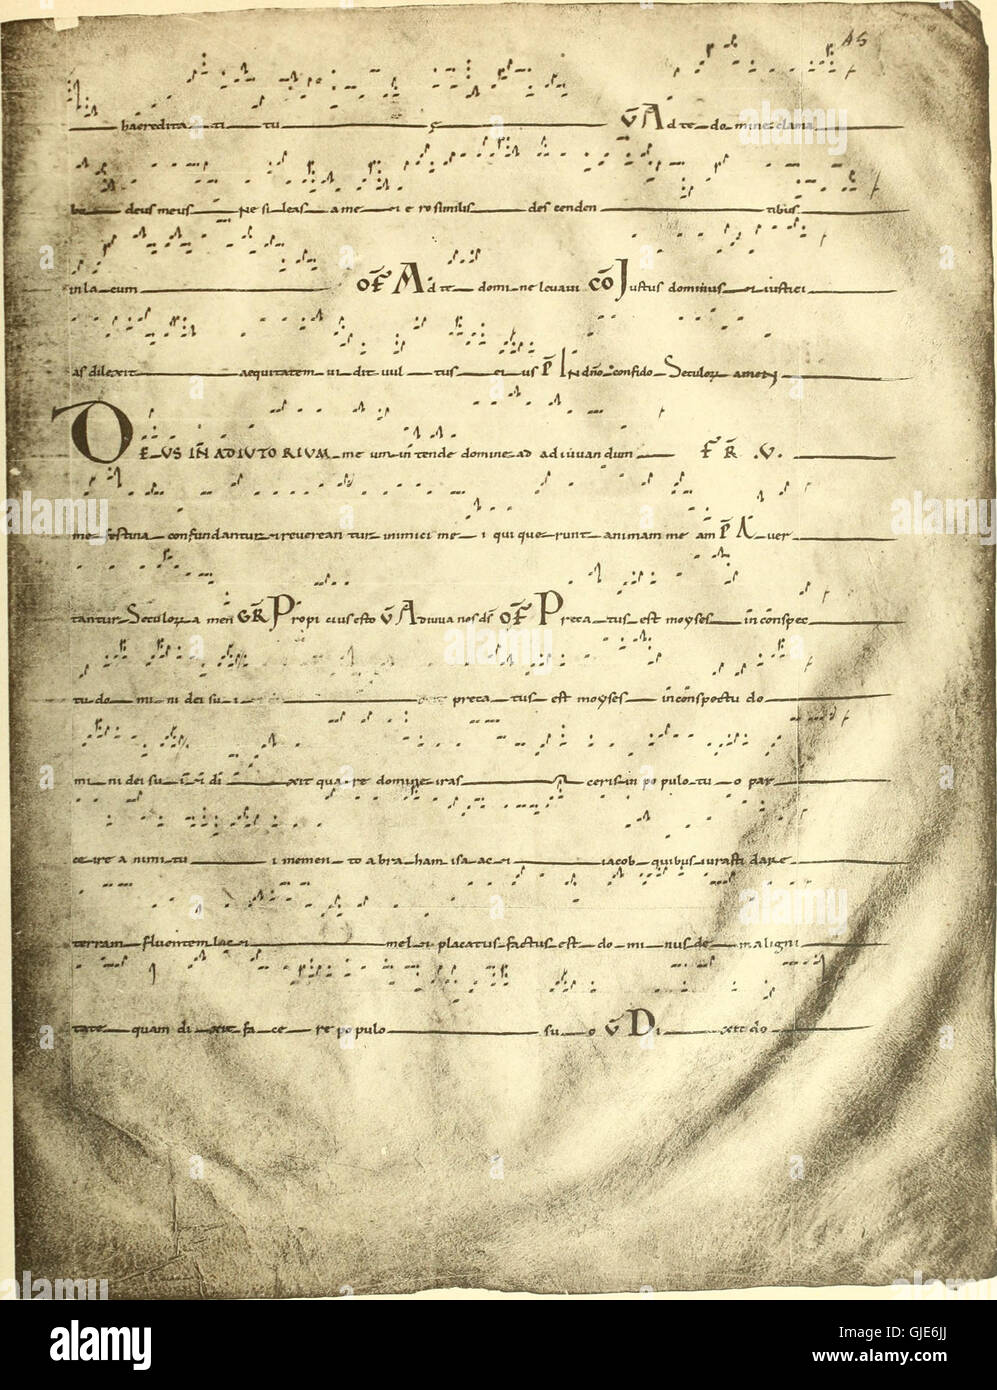 45
haeredita ti tu s V Ad te do mine clama
bo deus meus Ne sileas a me et ero similis descenden tibus
in la cum OF Ad te domi ne levavi CO Justus dominus et iustici
as dilexit aequitatem vi dit vul tus ei us P IN dño confido Seculor amen
DE US IN ADIUTO RIUM me um in tende domine ad adiuvan dum
me festina confundantur et reverean tur inimici me i qui quae runt animam me am P A ver
tantur Seculor a men GR Propi cius esto V Adiuva nos ds OF Preca tus est moyses in conspec
tu do mi ni dei su i preca tus est moyses in conspectu do
mi ni dei su i et di xit qua re domine iras ceris in po pulo tu o par
ce ire a nimi tu i memen to abra ham isa ac et iacob quibus iurasti dare
terram fluentem lac et mel et placatus factus est do mi nus de maligni
tate quam di xit fa ce re po pulo su o V Di xit do
alamy
Image ID: GJE6JJ
www.alamy.com